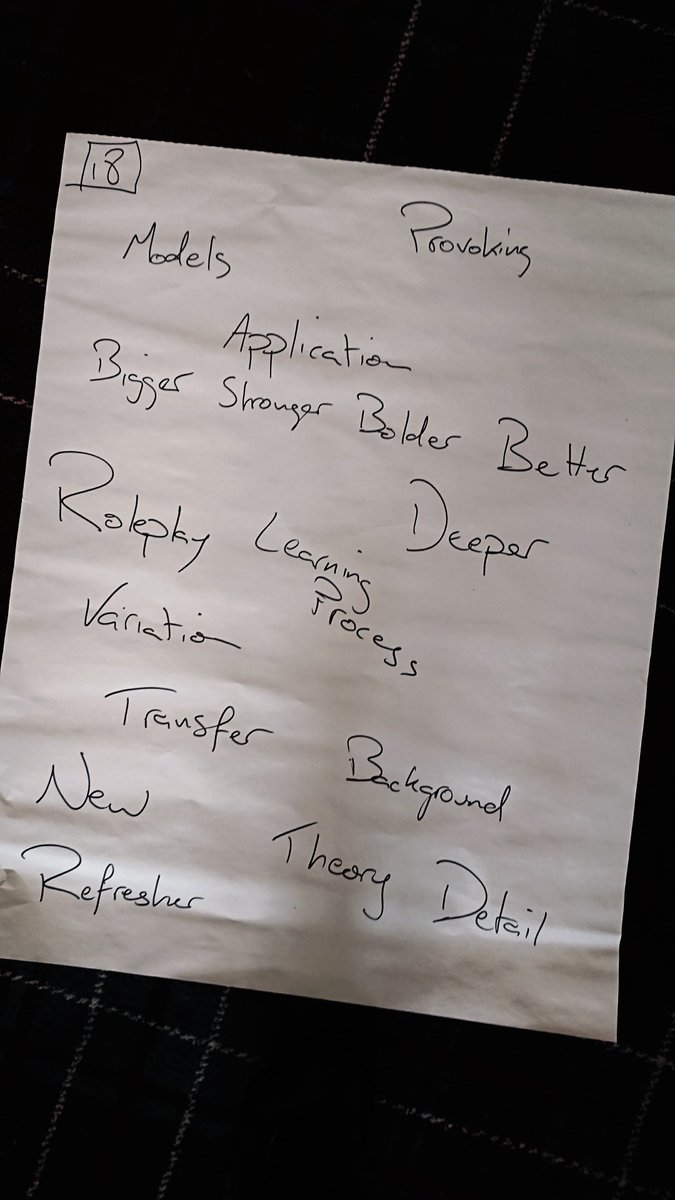 18
Models Provoking
Application
Bigger Stronger Bolder Better
Roleplay Learning Deeper
Process
Variation
Transfer Background
New Theory Detail
Refresher